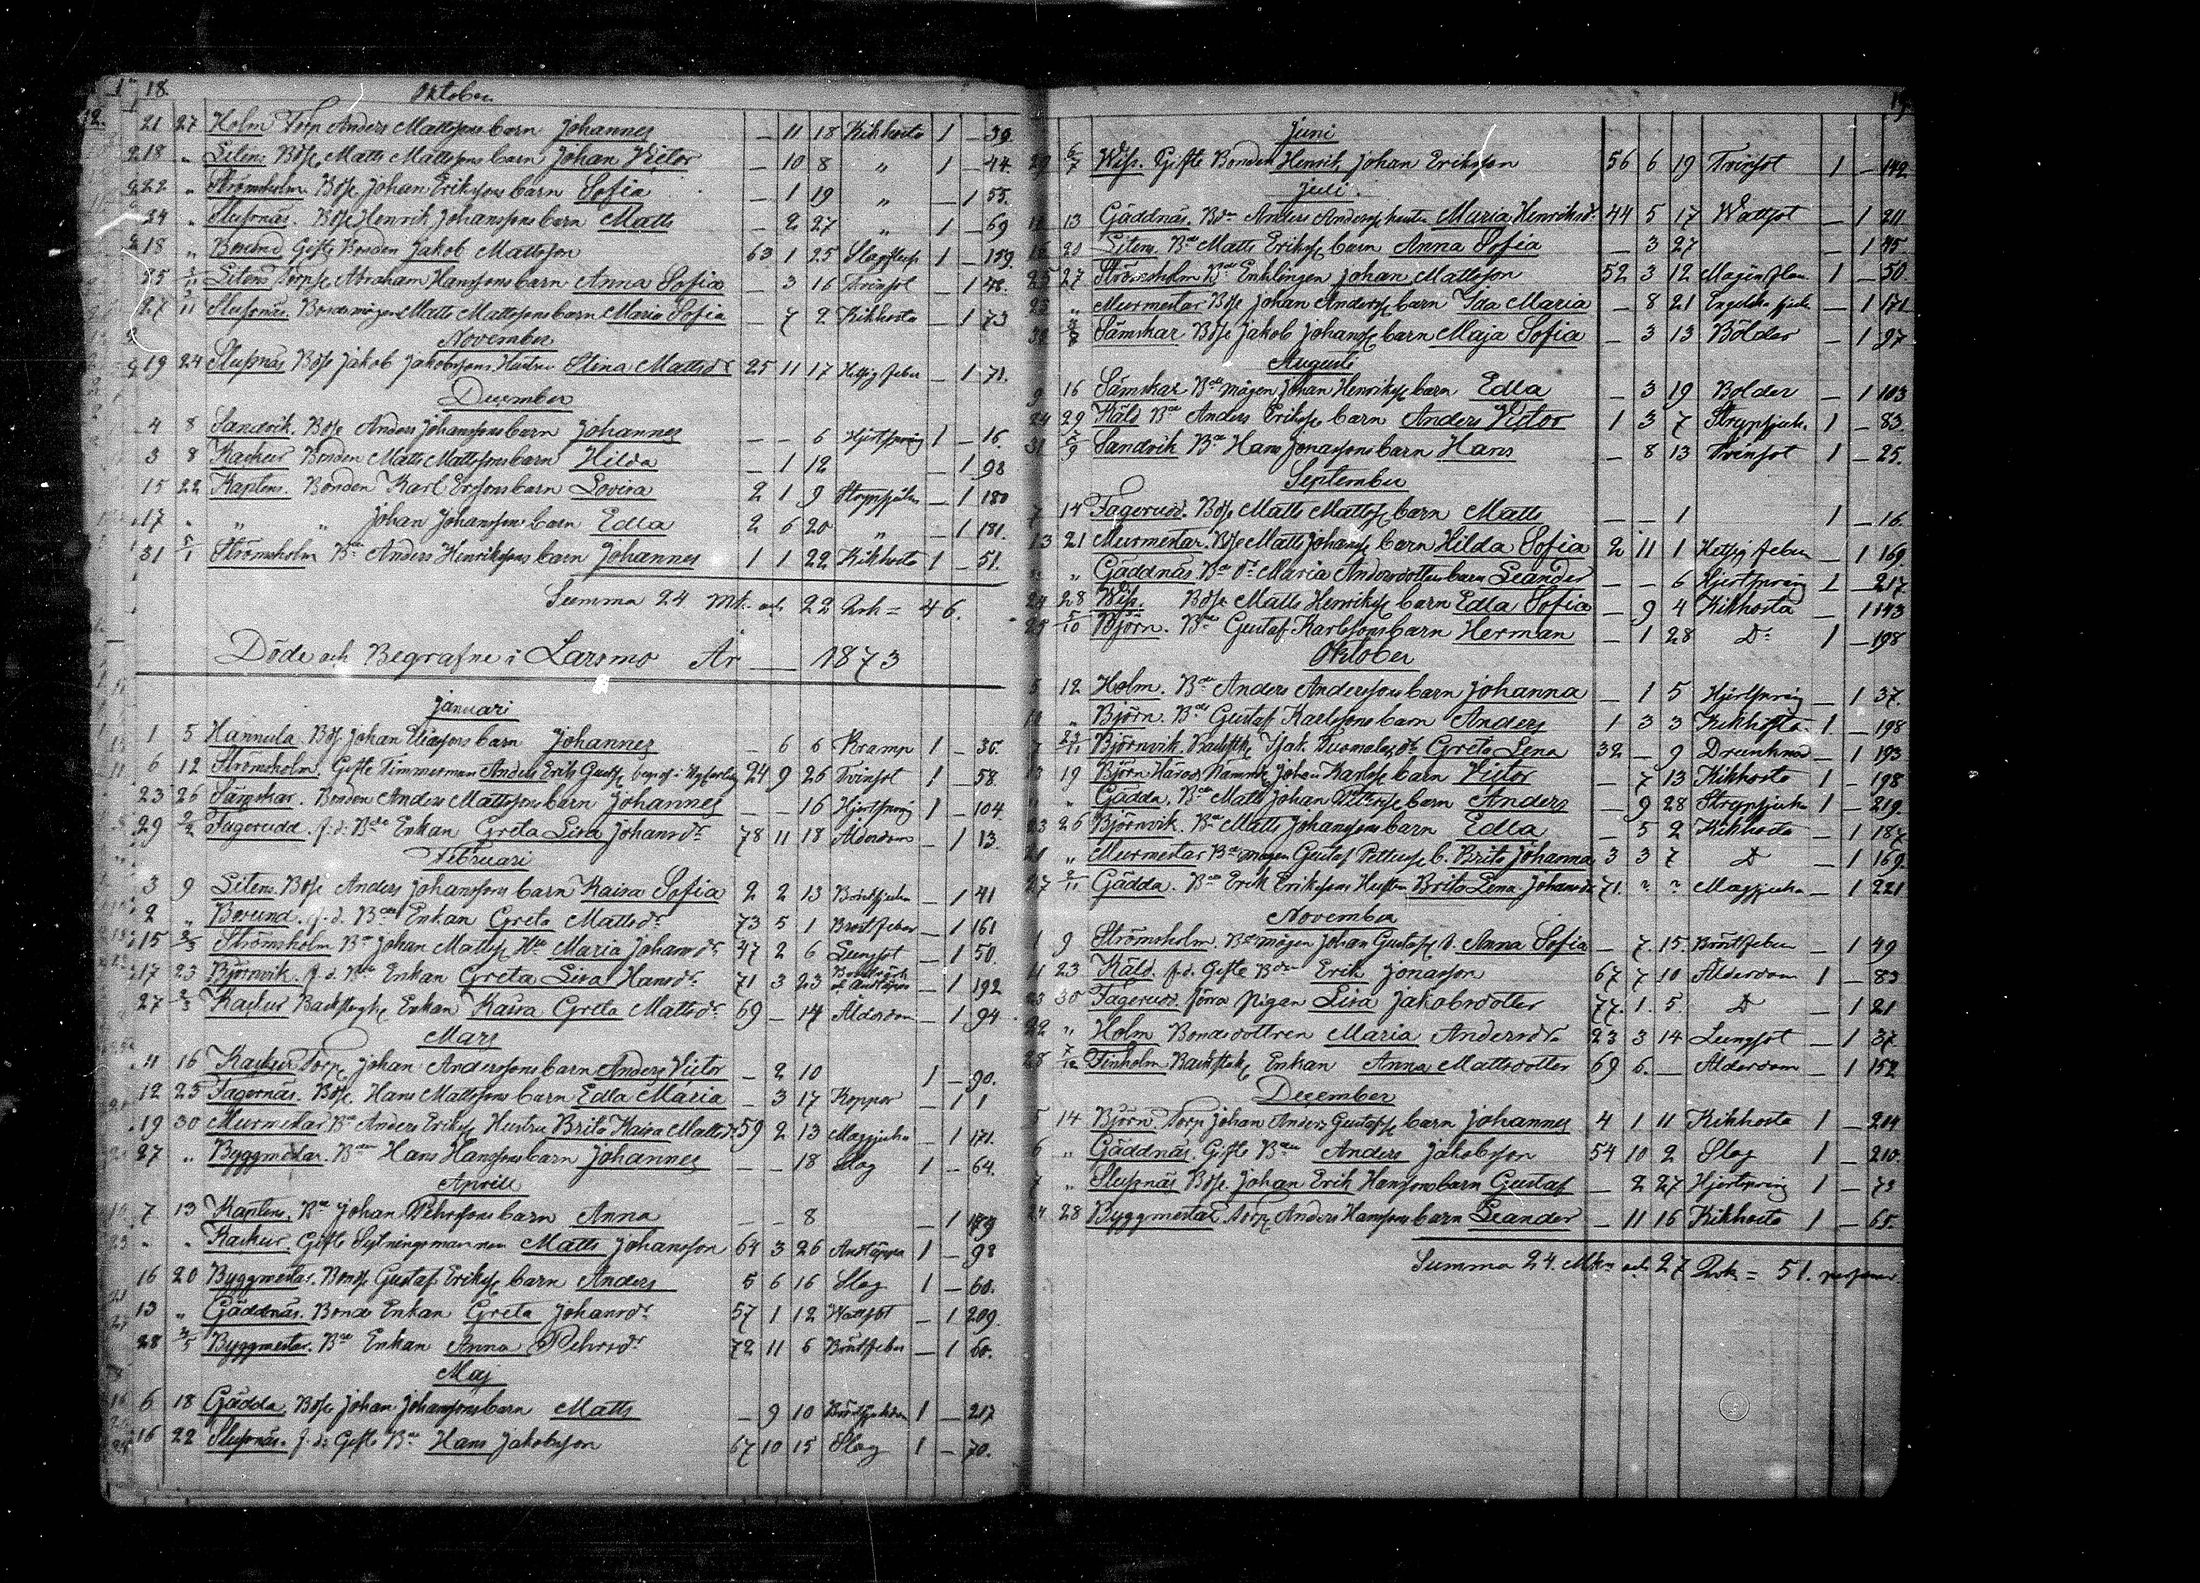 18. Oktober
12. 21 27 Holm Torp Anders Mattssons barn Johannes — 11 18 Kikhosta 1 — 39.
18 „ Sitens Bdse Matts Mattssons barn Johan Victor — 10 8 „ 1 — 44.
22 „ Strömsholm Bdse Johan Erikssons barn Sofia — 1 19 „ — 1 55.
24 „ Slussnäs. Bdse Henrik Johanssons barn Matts — 2 27 „ 1 — 69
18 „ Bosund Gifte Bonden Jakob Mattsson 63 1 25 Slag 1 — 159.
25 Sitens Torpse Abraham Hanssons barn Anna Sofia — 3 16 Tvinsot — 1 48.
27 Slussnäs. Bondemågen Matts Mattssons barn Maria Sofia — 7 2 Kikhosta — 1 73
November
19 24 Slussnäs Bdse Jakob Jakobssons Hustru Stina Mattsdr 25 11 17 Hetsig feber — 1 71.
December
4 8 Sandvik. Bdse Anders Johanssons barn Johannes — — 6 Hjertsprång 1 — 16.
3 8 Kackur Bonden Matts Mattssons barn Hilda — 1 12 — 1 98
15 22 Kaptens. Bonden Karl Ersssons barn Lovisa 2 1 9 Strypsjukan — 1 180
17 „ „ „ Johan Johanssons barn Edla 2 6 20 „ — 1 181.
31 5/1 Strömsholm Bde Anders Henrikssons barn Johannes 1 1 22 Kikhosta 1 — 51.
Summa 24 Mk. och 22 Qvk = 46.
Döde och Begrafne i Larsmo År — 1873
Januari
1 5 Hannula. Bdse Johan Eliassons barn Johannes — 6 6 Kramp 1 — 36.
6 12 Strömsholm. Gifte Timmerman Anders Erik Gustss 24 9 26 Tvinsot 1 — 58.
23 26 Sämskar. Bonden Anders Mattssons barn Johannes — — 16 Hjertsprång 1 — 104.
29 2/2 Fagerudd. f.d. Bde Enkan Greta Lisa Johansdr 78 11 18 Ålderdom — 1 13.
Februari
3 9 Sitens. Bdse Anders Johanssons barn Kaisa Sofia 2 2 13 Bröstsjukan — 1 41
2 „ Bosund. f.d. Bde Enkan Greta Mattsdr 73 5 1 Bröstfeber — 1 161
15 2/3 Strömsholm Bde Johan Mattss Hu Maria Johansdr 47 2 6 Lungsot — 1 50.
17 23 Björnvik. f.d. Bde Enkan Greta Lisa Hansdr 71 3 23 Bröstvärk o. Andtäppa — 1 192
27 2/3 Kackur Enkan Kaisa Greta Mattsdr 69 — 14 Ålderdom — 1 94
Mars
11 16 Kackur Torp. Johan Anderssons barn Anders Victor — 2 10 1 — 90.
12 23 Fagernäs. Bdse Hans Mattssons barn Edla Maria — 3 17 Koppor — 1 1
19 30 Murmestar Bde Anders Erikss Hustru Brita Kaisa Mattsdr 59 2 13 Magsjuka — 1 171.
27 „ Byggmestar. Bde Hans Hanssons barn Johannes — — 18 Slag 1 — 64.
Aprill
7 13 Kaptens. Bde Johan Pehrssons barn Anna — — 8 — 1 179
„ „ Kackur. Gifte Sytningsmannen Matts Johansson 64 3 26 Andtäppa 1 — 98
16 20 Byggmestar. Bdse Gustaf Erikss barn Anders 5 6 16 Slag 1 — 60.
13 „ Gäddnäs. Bonde Enkan Greta Johansdr 57 1 12 Wattsot — 1 209.
28 4/5 Byggmestar. Bde Enkan Anna Pehrsdr 72 11 6 Bröstfeber — 1 60.
Maj
6 18 Gädda. Bdse Johan Johanssons barn Matts — 9 10 Bröstsjukdom 1 — 217
16 22 Slussnäs. f.d. Gifte Bde Hans Jakobsson 67 10 15 Slag 1 — 70.
19
Juni
29 6/7 Wiss. Gifte Bonden Henrik Johan Eriksson 56 6 19 Tvinsot 1 — 142.
Juli
13 Gäddnäs. Bde Anders Anderss hustru Maria Henriksdr 44 5 17 Wattsot — 1 211.
20 Sitens. Bde Matts Erikss barn Anna Sofia — 3 27 — 1 45.
25 27 Strömsholm Bde Enklingen Johan Mattsson 52 3 12 1 — 50
23 „ Murmestar Bdse Johan Anderss barn Ida Maria — 8 21 Engelska sjuk. — 1 171
30 Sämskar Bdse Jakob Johanss barn Maja Sofia — 3 13 Bölder — 1 97
Augusti
9 16 Sämskar Bde mågen Johan Henrikss barn Edla — 3 19 Bolder — 1 103
24 29 Käld Bde Anders Erikss barn Anders Victor 1 3 7 Strypsjuk. 1 — 83
31 Sandvik Bde Hans Jonassons barn Hans — 8 13 Tvinsot 1 — 25.
September
7 14 Fagerudd. Bdse Matts Mattss barn Matts — — 1 1 — 16.
13 21 Murmestar. Bdse Matts Johanss barn Hilda Sofia 2 11 1 Hetsig feber — 1 169.
„ „ Gäddnäs. Bde dr Maria Andersdotters barn Leander — — 6 Hjertsprång 1 — 217.
24 28 Wiss. Bdse Matts Henrikss barn Edla Sofia — 9 4 Kikhosta — 1 143
29 5/10 Björn. Bde Gustaf Karlssons barn Herman — 1 28 Do 1 — 198
Oktober
5 12 Holm. Bde Anders Anderssons barn Johanna — 1 5 Hjertsprång — 1 37.
10 „ Björn. Bde Gustaf Karlssons barn Anders 1 3 3 Kikhosta 1 — 198
7 Björnvik. Greta Lena 32 — 9 Drunknad — 1 193
13 19 Björn Johan Karlss barn Victor — 7 13 Kikhosta 1 — 198
„ „ Gädda. Bde Matts Johan barn Anders — 9 28 Strypsjuka 1 — 219.
23 26 Björnvik. Bde Matts Johanssons barn Edla — 5 2 Kikhosta — 1 187
21 „ Murmestar Bde mågen Gustaf Petterss b. Brita Johanna 3 3 7 D — 1 169.
27 2/11 Gädda. Bde Erik Erikssons Hustru Brita Lena Johansdr 71. ? ? Magsjuka — 1 221
November
1 9 Strömsholm. Bde mågen Johan Gustafs b. Anna Sofia — 7. 15. Bröstfeber — 1 49
11 23 Käld. f.d. Gifte Bde Erik Jonasson 67 7 10 Ålderdom 1 — 83
23 30 Fagerudd. förra pigan Lisa Jakobsdotter 77. 1. 5. D — 1 21
22 „ Holm Bondedottren Maria Andersdr 23 3 14 Lungsot — 1 37.
28 7/12 Finholm Enkan Anna Mattsdotter 69 6. — Ålderdom — 1 152
December
5 14 Björn. Torp. Johan Anders Gustafss barn Johannes 4 1 11 Kikhosta 1 — 214
6 „ Gäddnäs. Gifte Bde Anders Jakobsson 54 10 2 Slag 1 — 210.
7 „ Slussnäs Bdse Johan Erik Hanssons barn Gustaf — 2 27 Hjertsprång 1 — 73
24 28 Byggmestar Torp. Anders Hanssons barn Leander — 11 16 Kikhosta 1 — 65.
Summa 24. Mkn och 27 Qvk = 51. personer